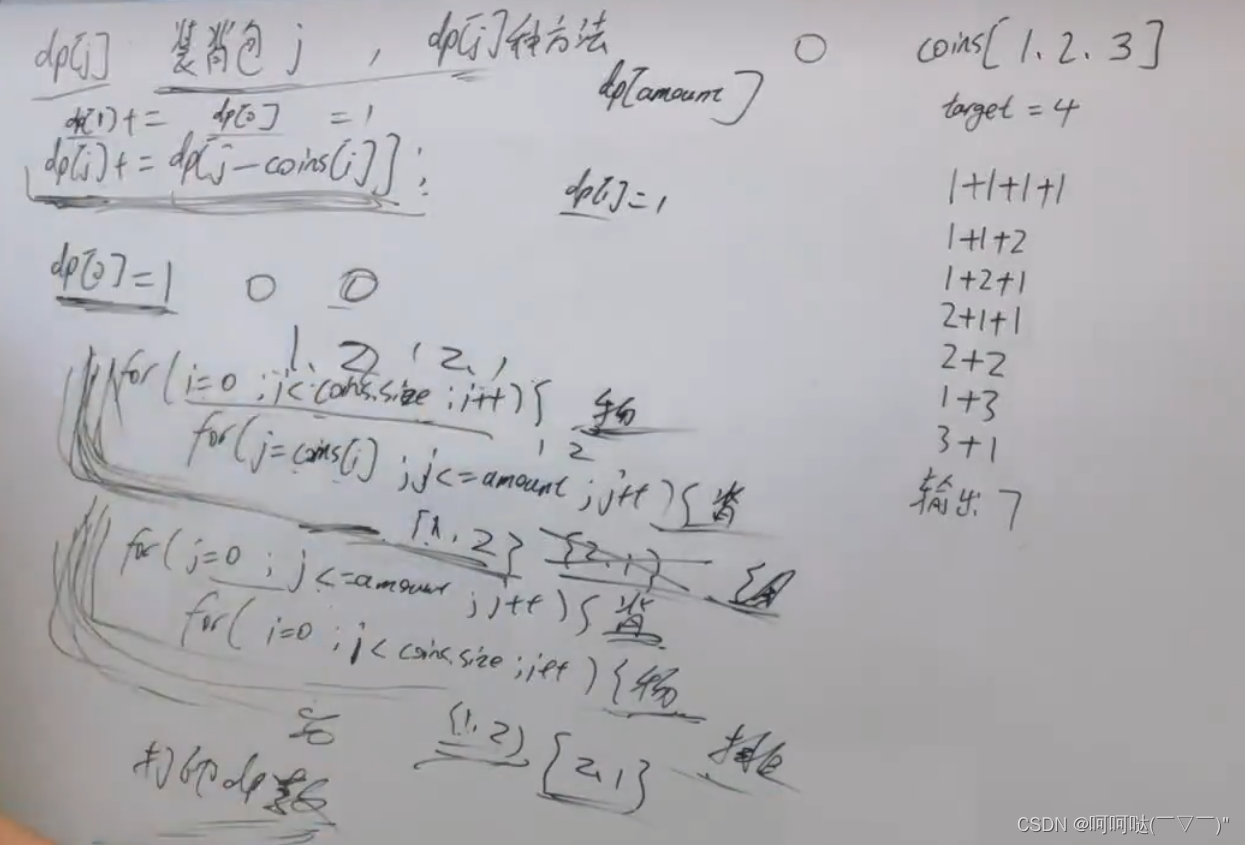 dp[j] 装背包 j , dp[j]种方法
dp[amount]
dp[1] += dp[0] = 1
dp[j] += dp[j-coins[i]];
dp[i]=1
dp[0]=1 0 0
1. 2, 1 2. 1
for(i=0; i<coins.size; i++){ 物
1 2
for(j=coins[i]; j<=amount; j++){ 背
{1, 2} {2, 1}
for(j=0; j<=amount; j++){ 背
for(i=0; i<coins.size; i++){ 物
{1, 2} {2, 1} 排
打印dp数
0 coins[1.2.3]
target = 4
1+1+1+1
1+1+2
1+2+1
2+1+1
2+2
1+3
3+1
输出 7
CSDN @呵呵哒(￣▽￣)"